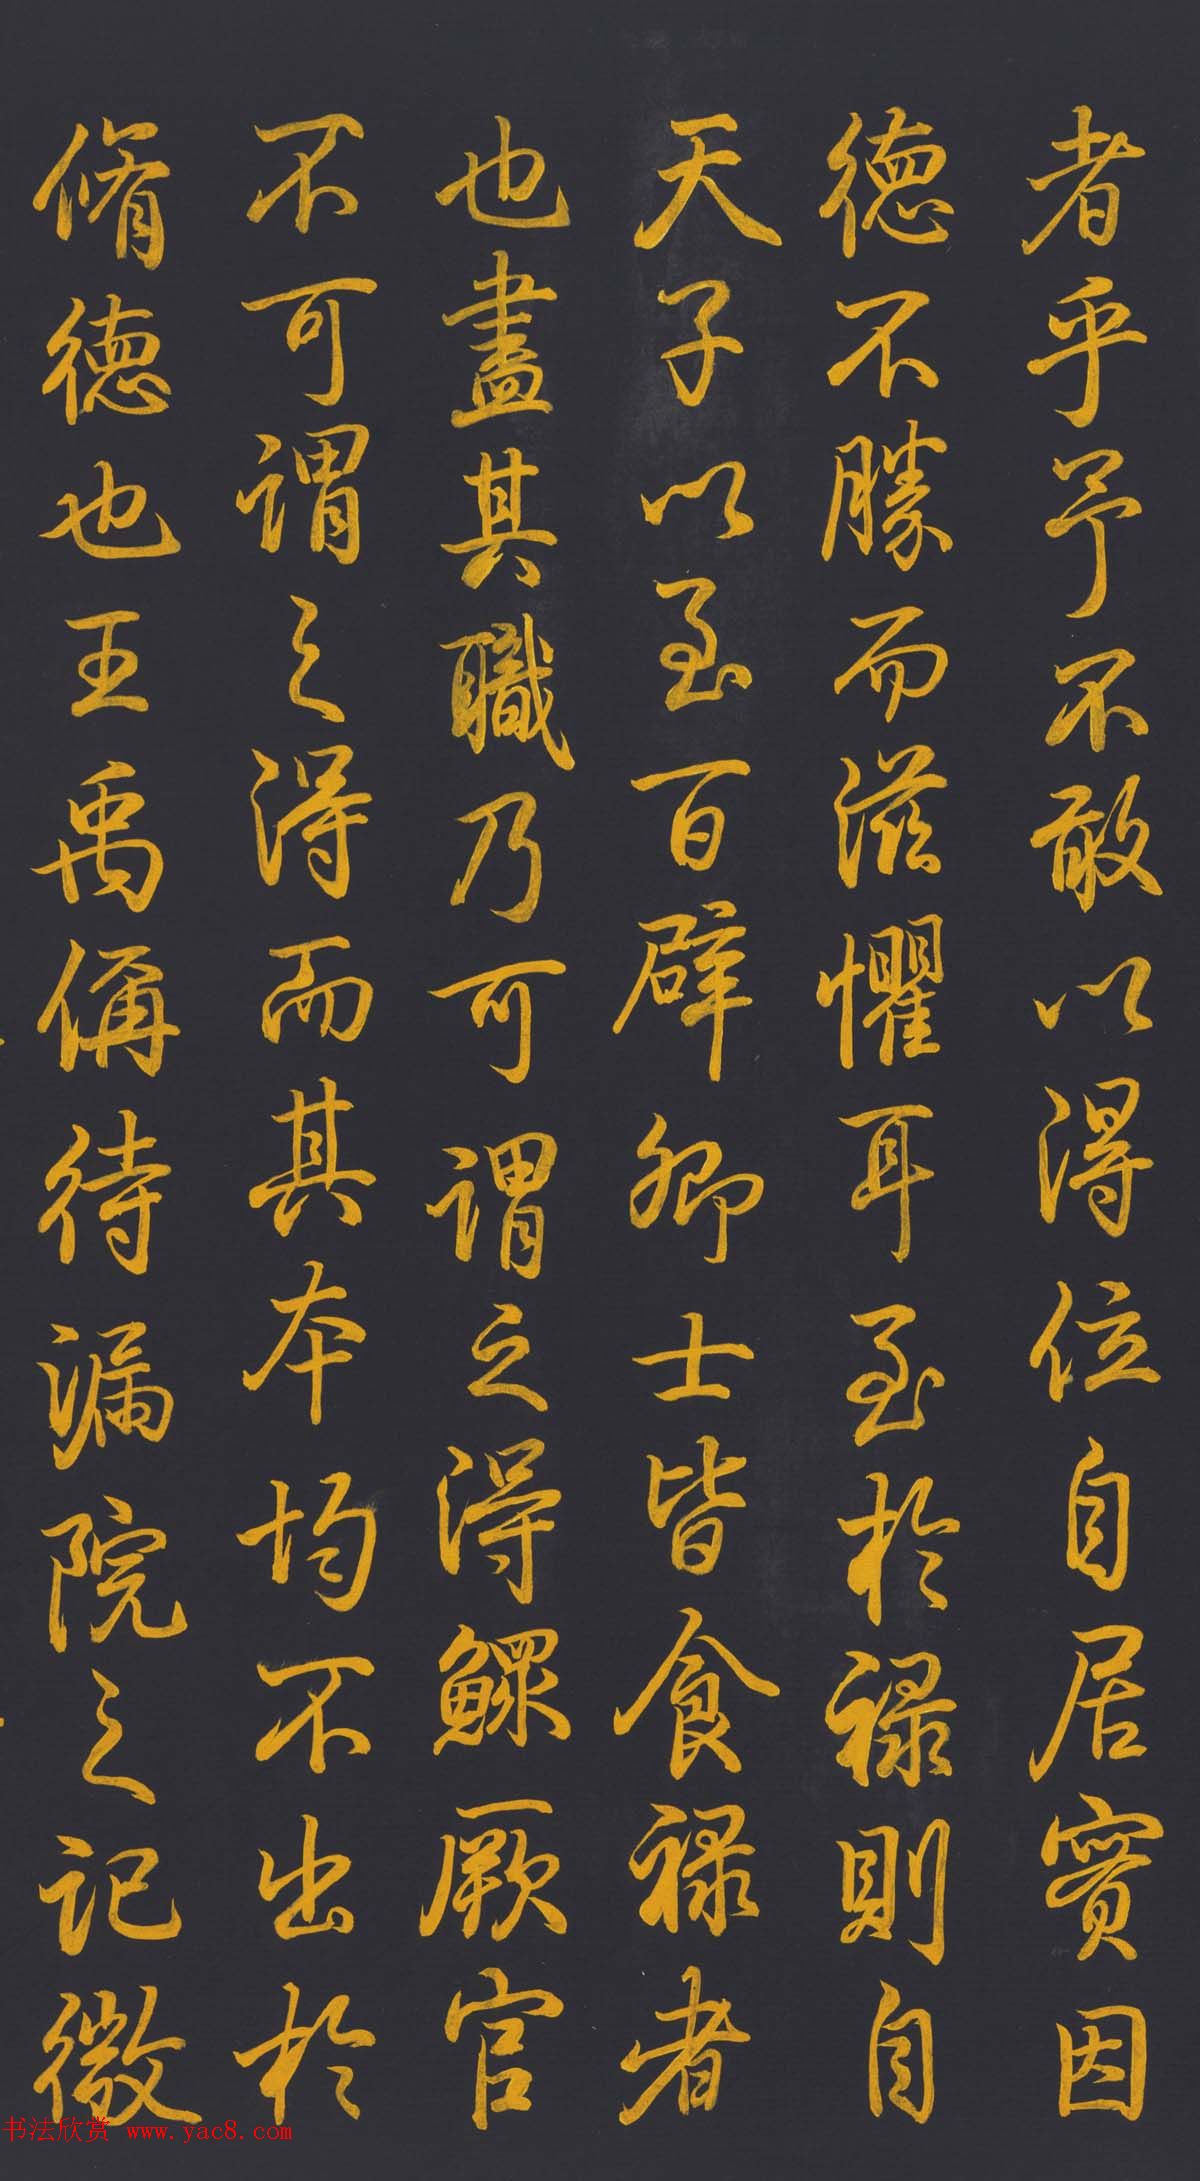 者乎予不敢以得位自居實因
德不勝而滋懼耳至於祿則自
天子以至百辟卿士皆食祿者
也盡其職乃可謂之得鰥厥官
不可謂之得而其本均不出於
脩德也王禹偁待漏院之記微
书法欣赏 www.yac8.com